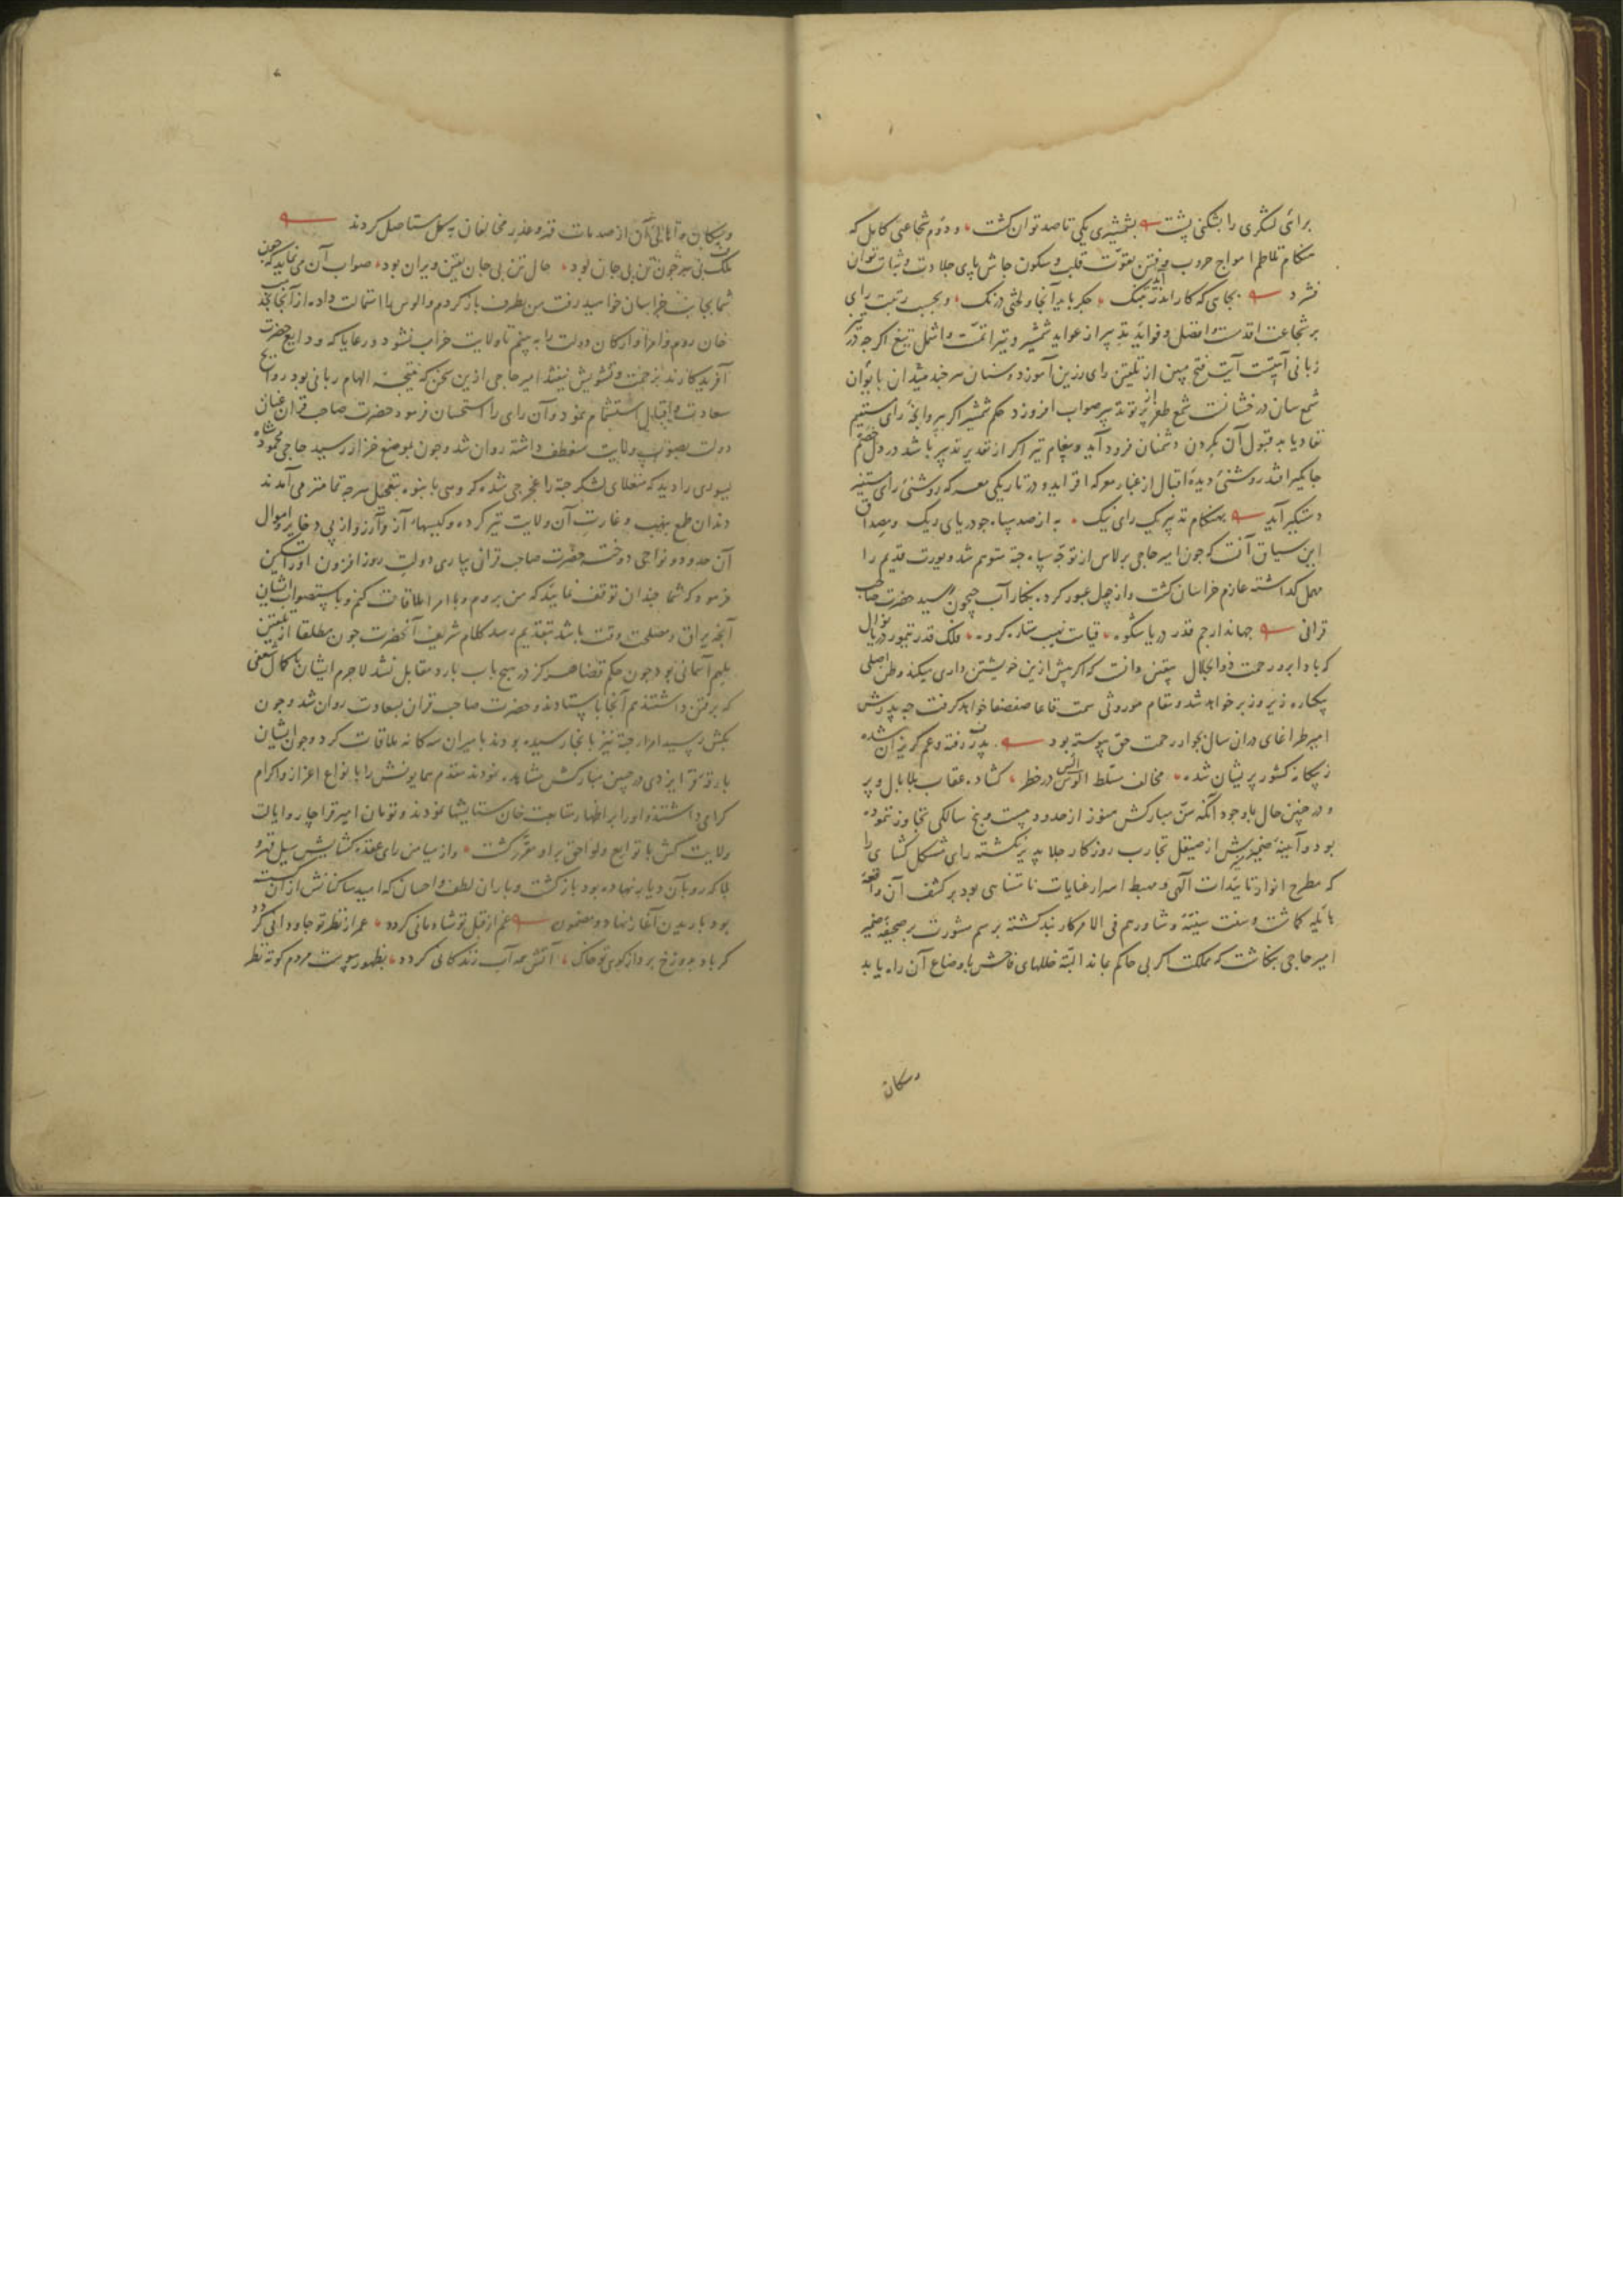 برائی لشکری را بشکنی پشت بشمشیری یکی تا صد توان کشت و دوم شجاعتی کامل که
هنکام تلاطم امواج حروب و فتن بقوّت قلب و سکون جاش پای جلادت و ثبات توان
فشرد بجایی که کار اندر آید بتنک جکر باید آنجا و لختی درنک و بحسب رتبت رای
بر شجاعت اقدمست و افضل و فواید تدبیر از عواید شمشیر و تیر اتمّ و اشمل تیغ اکرچه در
زبانی آیتیست آیت فتح مبین از تلقین رای رزین آموزد و سنان سرخیل میدان
شمع سان درخشانست شمع ظفر از پرتو تدبیر صواب افروزد حکم شمشیر اکر بپروانۀ رای مستقیم
نفاذ یابد قبول آن بکردن دشمنان فرود آید و پیغام تیر اکر از تقدیر تدبیر باشد در دل خصم
جایکیر افتد روشنئ دیدۀ اقبال از غبار معرکه افزاید و در تاریکی معرکه روشنئ رای مستنیر
دستکیر آید بهنکام تدبیر یک رای نیک به از صد سپاه چو دریای ریک و مصداق
این سیاق آنست که چون امیر حاجی برلاس از توجّه سپاه جته متوهم شد و یورت قدیم را
مهمل کذاشته عازم خراسان کشت و از جمل عبور کرده بکنار آب جیحون رسید حضرت صاحب
قرانی جهاندار جم قدر دریا شکوه قیات نیب ستاره کروه ملک قدر تیمور دریا نوال
که با دا برو رحمت ذوالجلال بیقین دانست که اکر بیش ازین خویشتن داری میکند وطن اصلی
بیکباره زیر و زبر خواهد شد و مقام موروثی سمت قاعا صفصفا خواهد کرفت چه پدرش
امیر طراغای دران سال بجوار رحمت حق پیوسته بود پدر رفته و عم کریزان شده
ز بیکانه کشور پریشان شده مخالف مسلط الوس در خطر کشاده عقاب بلا بال و پر
و در چنین حال با وجود آنکه سنّ مبارکش هنوز از حدود بیست و پنج سالکی تجاوز ننموده
بود و آینۀ ضمیرش از صیقل تجارب روزکار جلا پذیر نکشته رای مشکل کشای را
که مطرح انوار تائیدات آلهی و مهبط اسرار عنایات نامتناهی بود بر کشف آن واقعه
بکماشت و سنت سنیّۀ و شاورهم فی الامر کار بند کشته برسم مشورت بر صحیفۀ ضمیر
امیر حاجی نکاشت که مملکت اکر بی حاکم بماند البتّه خللهای فاحش باوضاع آن راه یابد
وسکان
وسکان و اهالی آن از صدمات قهر و غدر مخالفان بکل مستاصل کردند
ملک بی سر چون تن بی جان بود حال تن بی جان بیقین ویران بود صواب آن می نماید که چون
شما بجانب خراسان خواهید رفت من بطرف باز کردم و الوس را استمالت داده از آنجا بخدمت
خان روم و امرا و ارکان دولت را به بینم تا ولایت خراب نشود و رعایا که ودایع حضرت
آفریدکارند بزحمت و تشویش نیفتند امیر حاجی ازین سخن که نتیجۀ الهام ربانی بود روایح
سعادت و اقبال استشمام نمود و آن رای را استحسان فرمود حضرت صاحب قران عنان
دولت بصوب ولایت منعطف داشته روان شد و چون بموضع خزار رسید حاجی محمود شاه
یسوری را دید که منغلای لشکر جته را غجرجی شده کروهی بانبوه بتعجیل هرچه تمامتر می آمدند
دندان طمع بنهب و غارت آن ولایت تیز کرده و کیسهاء آز و آرزو از پی ذخایر و اموال
آن حدود و نواحی دوخته حضرت صاحب قرانی بیاری دولت روز افزون او را تسکین
فرمود که شما چندان توقف نمایید که من بروم و با امرا ملاقات کنم و باستصواب ایشان
آنچه یراق و مصلحت وقت باشد بتقدیم رسد کلام شریف آنحضرت چون مطلقا از تلقین
ملهم آسمانی بود چون حکم قضا هرکز در هیچ باب بارد مقابل نشد لاجرم ایشان با کمال شعفی
که برفتن داشتند هم آنجا باستادند و حضرت صاحب قران بسعادت روان شد و چون
بکش رسید امرا جته نیز بآنجا رسیده بودند با میران سه کانه ملاقات کرد و چون ایشان
بارقۀ فرّ ایزدی در جبین مبارکش مشاهده نمودند مقدم همایونش را بانواع اعزاز و اکرام
کرامی داشتند و او را بر اظهار متابعت خان ستایشها نمودند و تومان امیر قراچار و ایالت
ولایت کش با توابع و لواحق برو مقرّر کشت و از میامن رای عقده کشایش سیل قهر و
بلا که رو بآن دیار نهاده بود باز کشت و باران لطف و احسان که امید ساکنانش از آن کسسته
بود باریدن آغاز نهاد و مضمون غم از قبل تو شادمانی کردد عمر از نظر تو جاودانی کردد
کر باد بدوزخ برد از کوی تو خاک آتش همه آب زندکانی کردد بظهور پیوست مردم کوته نظر